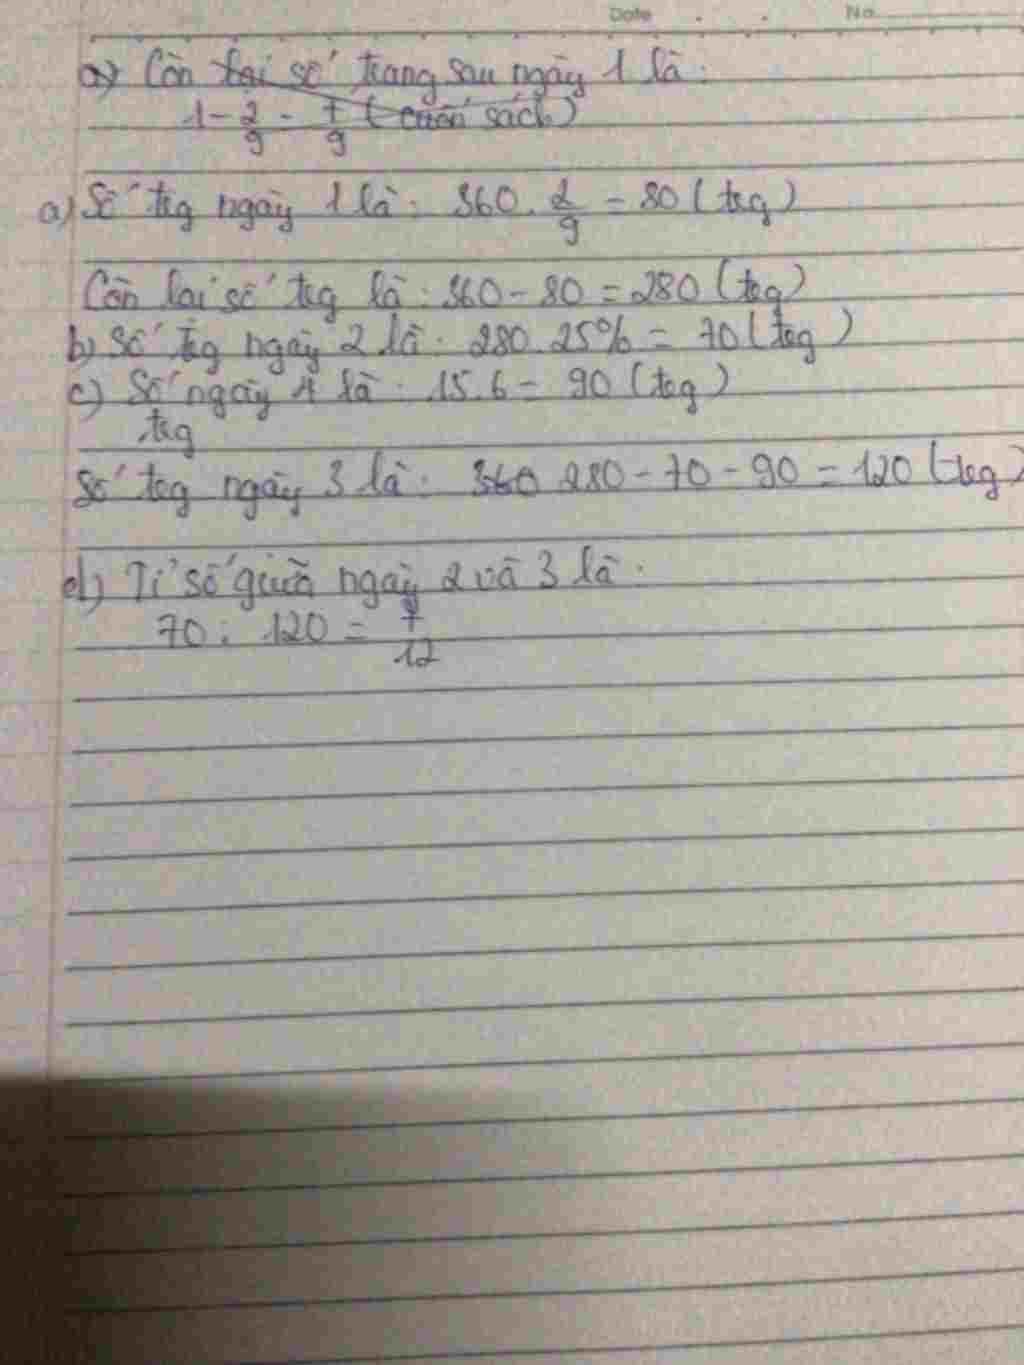 Date No.
a) Còn lại số trang sau ngày 1 là:
1 - 2/9 = 7/9 (cuốn sách)
a) Số trg ngày 1 là: 360. 2/9 = 80 (trg)
Còn lại số trg là: 360 - 80 = 280 (trg)
b) Số trg ngày 2 là: 280. 25% = 70 (trg)
c) Số ngày 4 là: 15.6 = 90 (trg)
trg
Số trg ngày 3 là: 360 280 - 70 - 90 = 120 (trg)
d) Tỉ số giữa ngày 2 và 3 là:
70 : 120 = 7/12